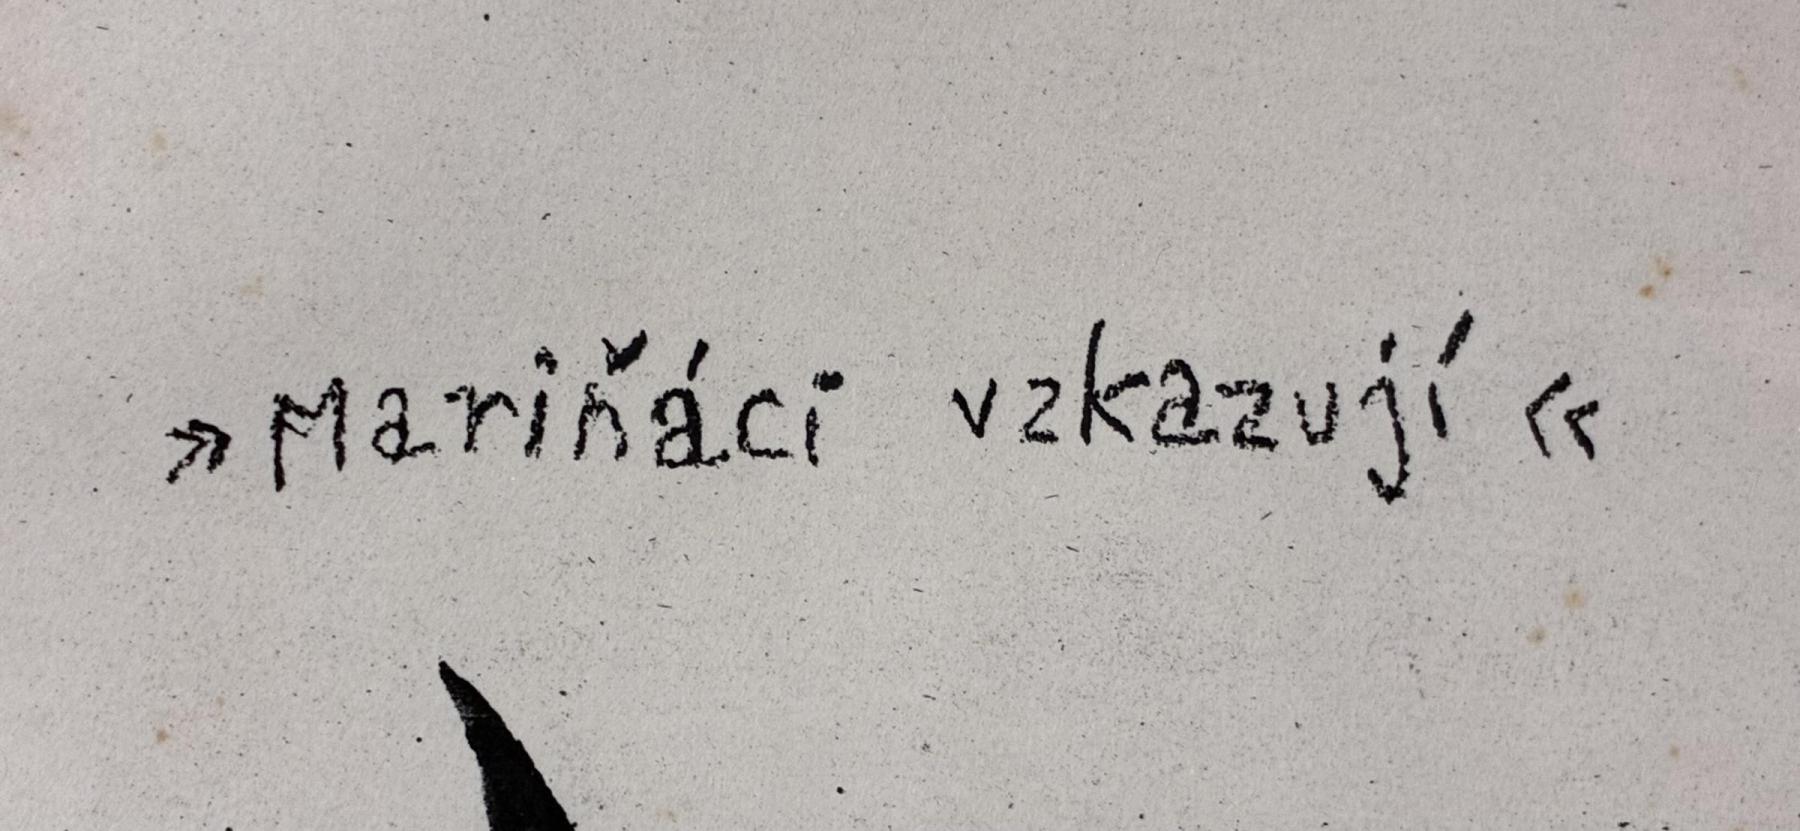 »Mariňáci vzkazují«